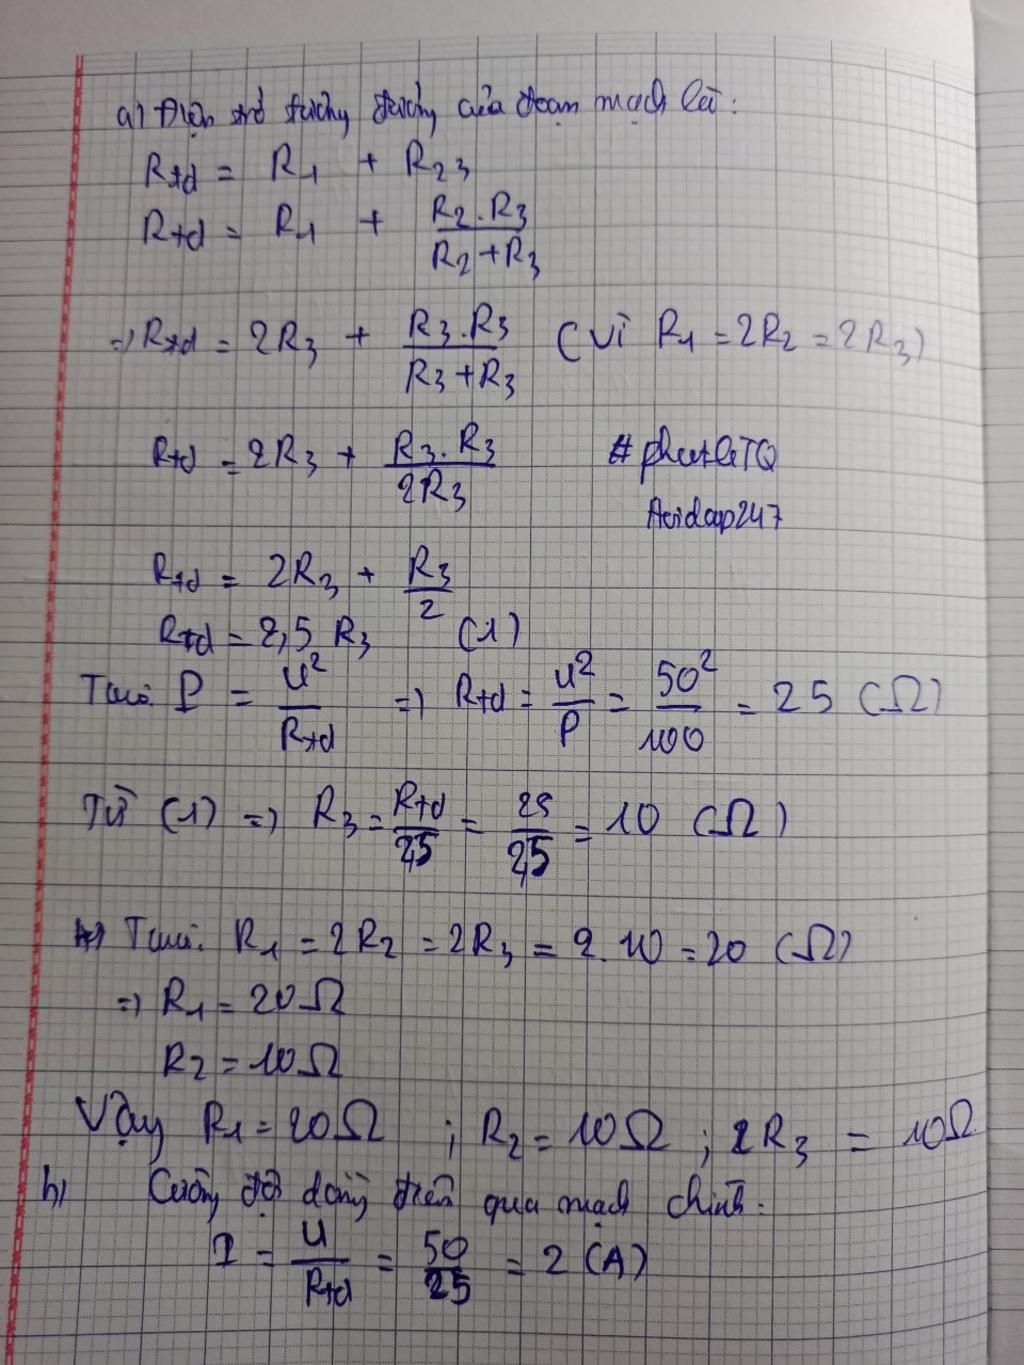 a) Điện trở tương đương của đoạn mạch là:
Rtđ = R1 + R23
Rtđ = R1 + R2.R3 / R2+R3
=> Rtđ = 2R3 + R3.R3 / R3+R3 (Vì R1 = 2R2 = 2R3)
Rtđ = 2R3 + R3.R3 / 2R3 #phatleTQ
Acidcop247
Rtđ = 2R3 + R3 / 2
Rtđ = 2,5 R3 (1)
P = U² / Rtđ => Rtđ = U² / P = 50² / 100 = 25 (Ω)
Từ (1) => R3 = Rtđ / 2,5 = 25 / 2,5 = 10 (Ω)
R1 = 2R2 = 2R3 = 2.10 = 20 (Ω)
=> R1 = 20Ω
R2 = 10Ω
Vậy R1 = 20Ω ; R2 = 10Ω ; 2R3 = 10Ω
b) Cường độ dòng điện qua mạch chính:
I = U / Rtđ = 50 / 25 = 2 (A)